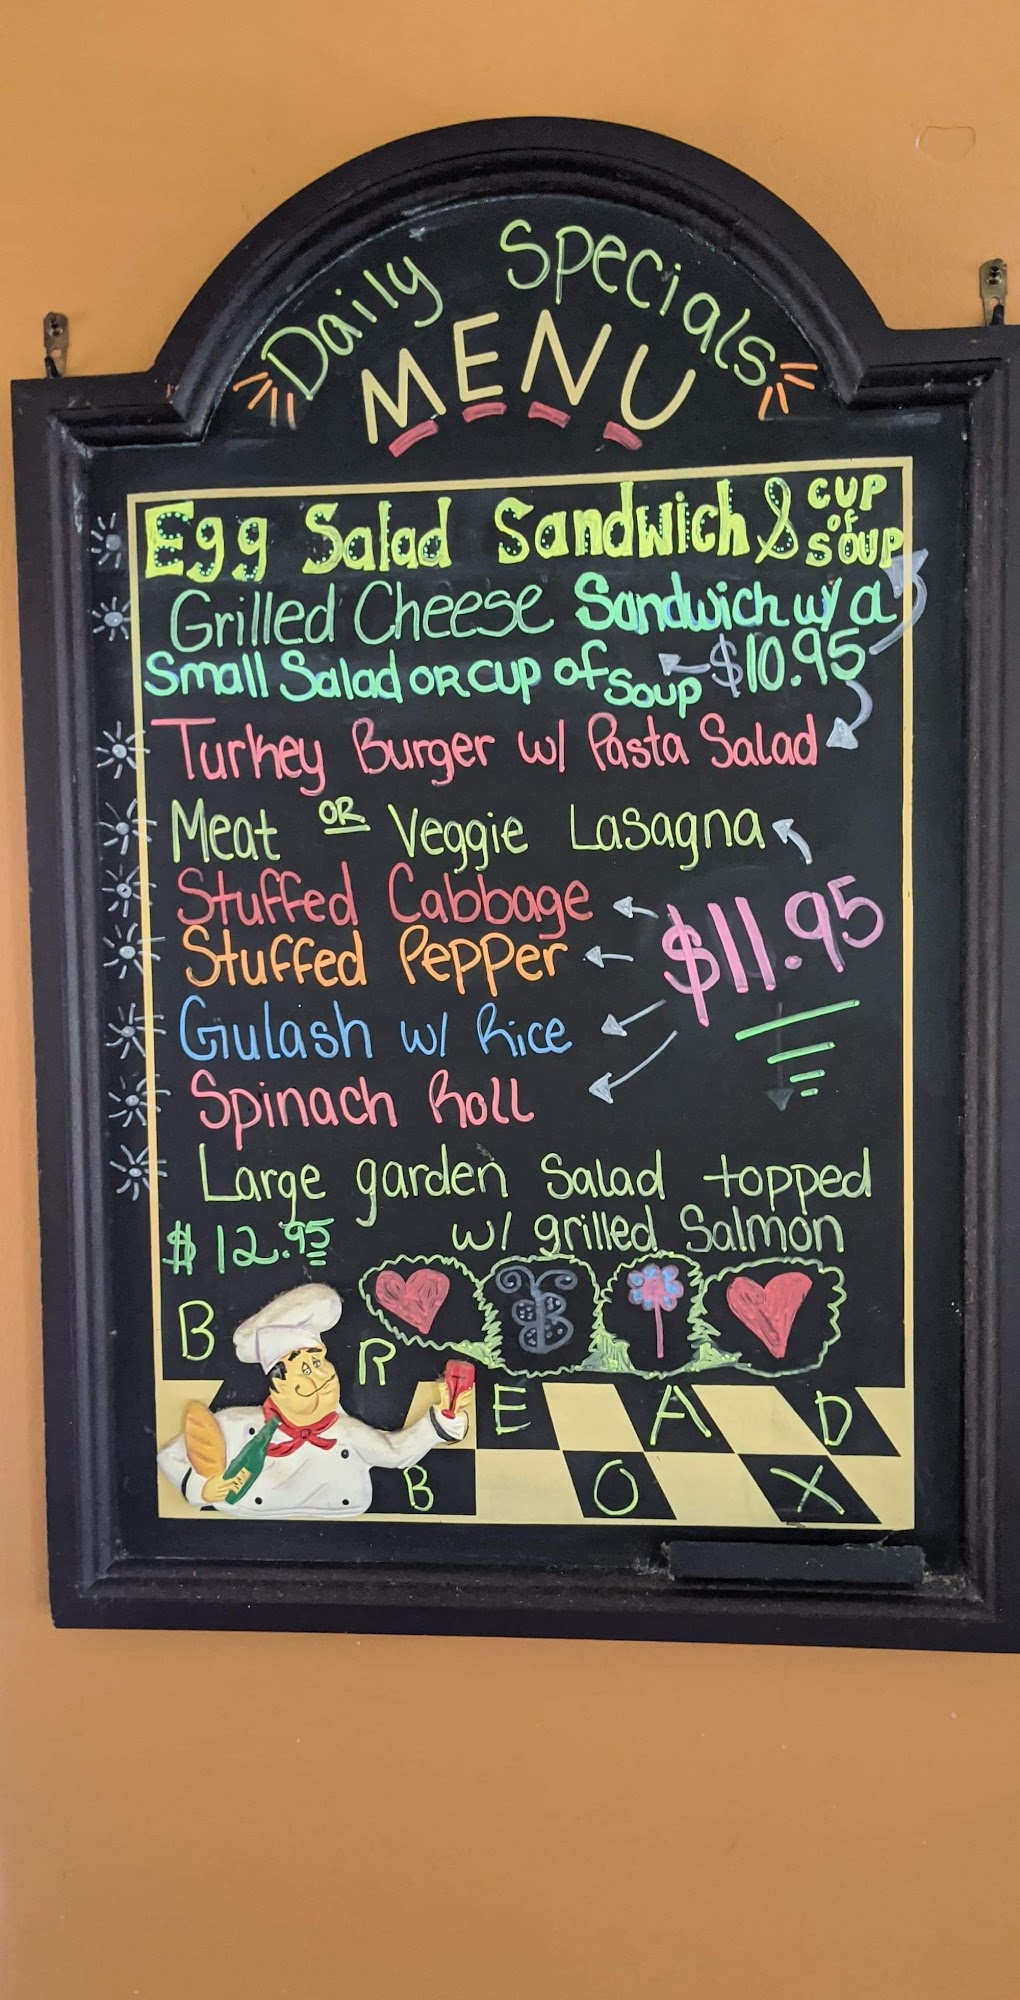 Daily Specials
MENU
Egg Salad Sandwich & CUP of SOUP
Grilled Cheese Sandwich w/ a
Small Salad OR CUP of Soup $10.95
Turkey Burger w/ Pasta Salad
Meat OR Veggie Lasagna
Stuffed Cabbage
Stuffed Pepper
$11.95
Gulash w/ Rice
Spinach Roll
Large garden Salad topped
w/ grilled Salmon
$12.95
BREAD
BOX